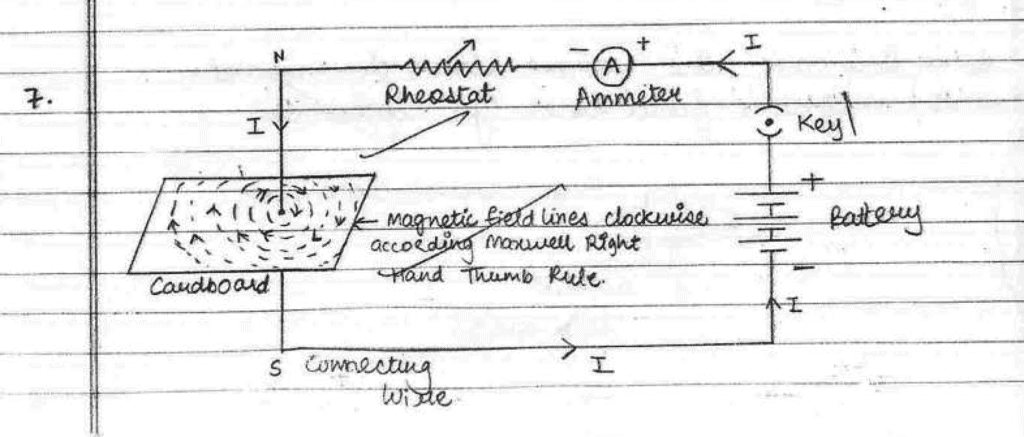 7.
N
Rheostat
- A +
Ammeter
I
I
Key
+
Battery
-
magnetic field lines clockwise
according Maxwell Right
Hand Thumb Rule.
Cardboard
I
S
Connecting
Wire
I